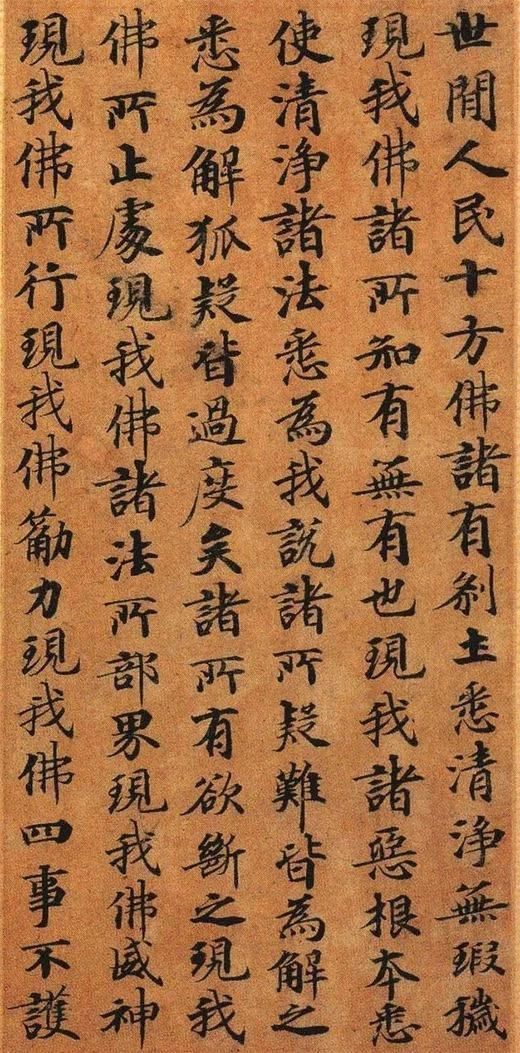 世間人民十方佛諸有刹土悉清淨無瑕穢
現我佛諸所知有無有也現我諸惡根本悉
使清淨諸法悉為我說諸所疑難皆為解之
悉為解狐疑皆過度矣諸所有欲斷之現我
佛所止處現我佛諸法所部界現我佛威神
現我佛所行現我佛觔力現我佛四事不護